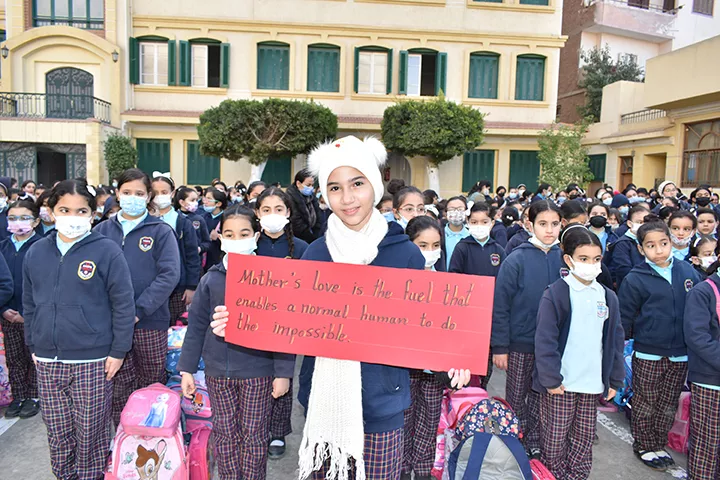 Mother's love is the fuel that
enables a normal human to do
the impossible.